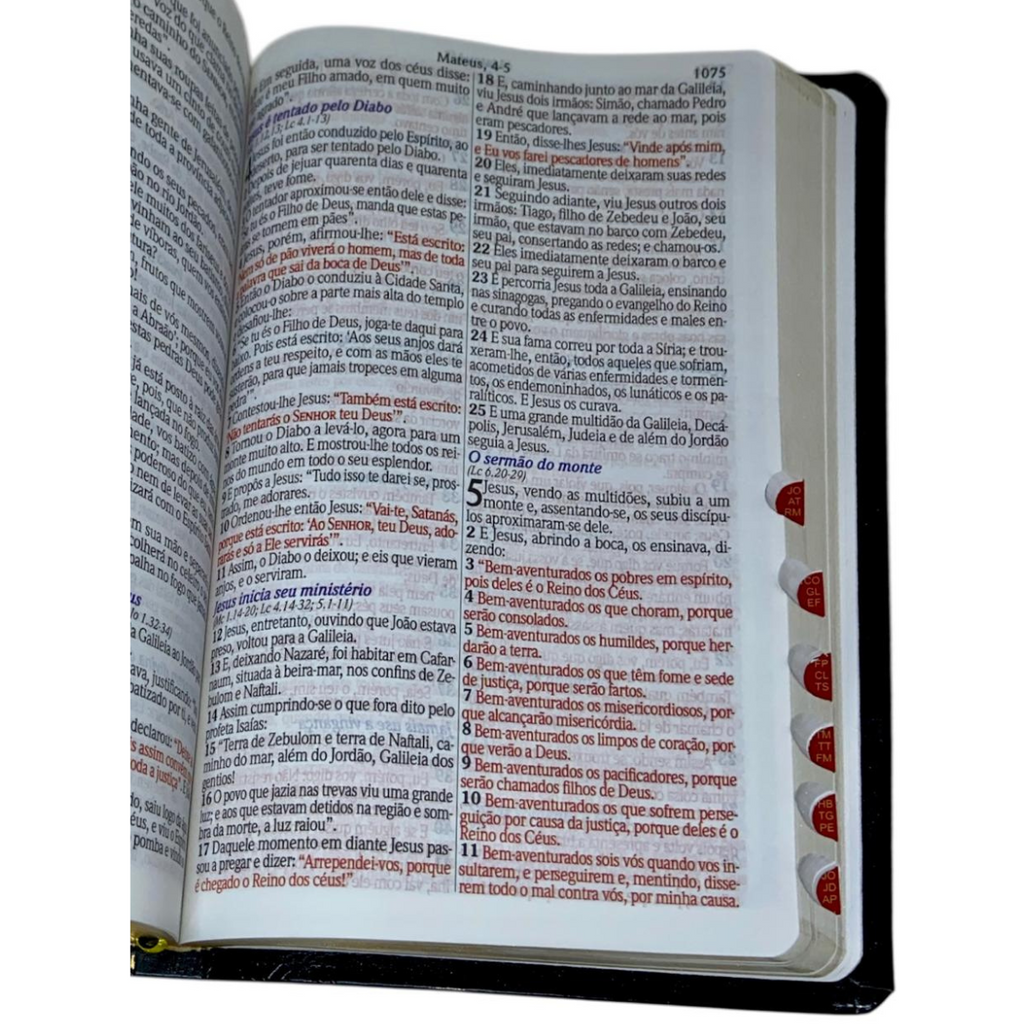 Mateus, 4-5
1075
Em seguida, uma voz dos céus disse:
é meu Filho amado, em quem muito
é tentado pelo Diabo
Lc 4.1-13)
foi então conduzido pelo Espírito, ao
para ser tentado pelo Diabo.
de jejuar quarenta dias e quarenta
teve fome.
tentador aproximou-se então dele e disse:
és o Filho de Deus, manda que estas pe-
se tornem em pães”.
Jesus, porém, afirmou-lhe: “Está escrito:
só de pão viverá o homem, mas de toda
palavra que sai da boca de Deus’”.
Então o Diabo o conduziu à Cidade Santa,
colocou-o sobre a parte mais alta do templo
desafiou-lhe:
“Se tu és o Filho de Deus, joga-te daqui para
Pois está escrito: ‘Aos seus anjos dará
a teu respeito, e com as mãos eles te
para que jamais tropeces em alguma
pedra’”.
Contestou-lhe Jesus: “Também está escrito:
‘Não tentarás o SENHOR teu Deus’”.
8 Tornou o Diabo a levá-lo, agora para um
monte muito alto. E mostrou-lhe todos os rei-
nos do mundo em todo o seu esplendor.
9 E propôs a Jesus: “Tudo isso te darei se, pros-
trado, me adorares.
10 Ordenou-lhe então Jesus: “Vai-te, Satanás,
porque está escrito: ‘Ao SENHOR, teu Deus, ado-
rarás e só a Ele servirás’”.
11 Assim, o Diabo o deixou; e eis que vieram
anjos, e o serviram.
Jesus inicia seu ministério
(Mc 1.14-20; Lc 4.14-32; 5.1-11)
12 Jesus, entretanto, ouvindo que João estava
preso, voltou para a Galileia.
13 E, deixando Nazaré, foi habitar em Cafar-
naum, situada à beira-mar, nos confins de Ze-
bulom e Naftali.
14 Assim cumprindo-se o que fora dito pelo
profeta Isaías:
15 “Terra de Zebulom e terra de Naftali, ca-
minho do mar, além do Jordão, Galileia dos
gentios!
16 O povo que jazia nas trevas viu uma grande
luz; e aos que estavam detidos na região e som-
bra da morte, a luz raiou”.
17 Daquele momento em diante Jesus pas-
sou a pregar e dizer: “Arrependei-vos, porque
é chegado o Reino dos céus!”
18 E, caminhando junto ao mar da Galileia,
viu Jesus dois irmãos: Simão, chamado Pedro
e André que lançavam a rede ao mar, pois
eram pescadores.
19 Então, disse-lhes Jesus: “Vinde após mim,
e Eu vos farei pescadores de homens”.
20 Eles, imediatamente deixaram suas redes
e seguiram Jesus.
21 Seguindo adiante, viu Jesus outros dois
irmãos: Tiago, filho de Zebedeu e João, seu
irmão, que estavam no barco com Zebedeu,
seu pai, consertando as redes; e chamou-os.
22 Eles imediatamente deixaram o barco e
seu pai para seguirem a Jesus.
23 E percorria Jesus toda a Galileia, ensinando
nas sinagogas, pregando o evangelho do Reino
e curando todas as enfermidades e males en-
tre o povo.
24 E sua fama correu por toda a Síria; e trou-
xeram-lhe, então, todos aqueles que sofriam,
acometidos de várias enfermidades e tormen-
tos, os endemoninhados, os lunáticos e os pa-
ralíticos. E Jesus os curava.
25 E uma grande multidão da Galileia, Decá-
polis, Jerusalém, Judeia e de além do Jordão
seguia a Jesus.
O sermão do monte
(Lc 6.20-29)
5 Jesus, vendo as multidões, subiu a um
monte e, assentando-se, os seus discípu-
los aproximaram-se dele.
2 E Jesus, abrindo a boca, os ensinava, di-
zendo:
3 “Bem-aventurados os pobres em espírito,
pois deles é o Reino dos Céus.
4 Bem-aventurados os que choram, porque
serão consolados.
5 Bem-aventurados os humildes, porque her-
darão a terra.
6 Bem-aventurados os que têm fome e sede
de justiça, porque serão fartos.
7 Bem-aventurados os misericordiosos, por-
que alcançarão misericórdia.
8 Bem-aventurados os limpos de coração, por-
que verão a Deus.
9 Bem-aventurados os pacificadores, porque
serão chamados filhos de Deus.
10 Bem-aventurados os que sofrem perse-
guição por causa da justiça, porque deles é o
Reino dos Céus.
11 Bem-aventurados sois vós quando vos in-
sultarem, e perseguirem e, mentindo, disse-
rem todo o mal contra vós, por minha causa.
JO
AT
RM
CO
GL
EF
FP
CL
TS
TM
TT
FM
HB
TG
PE
JO
JD
AP